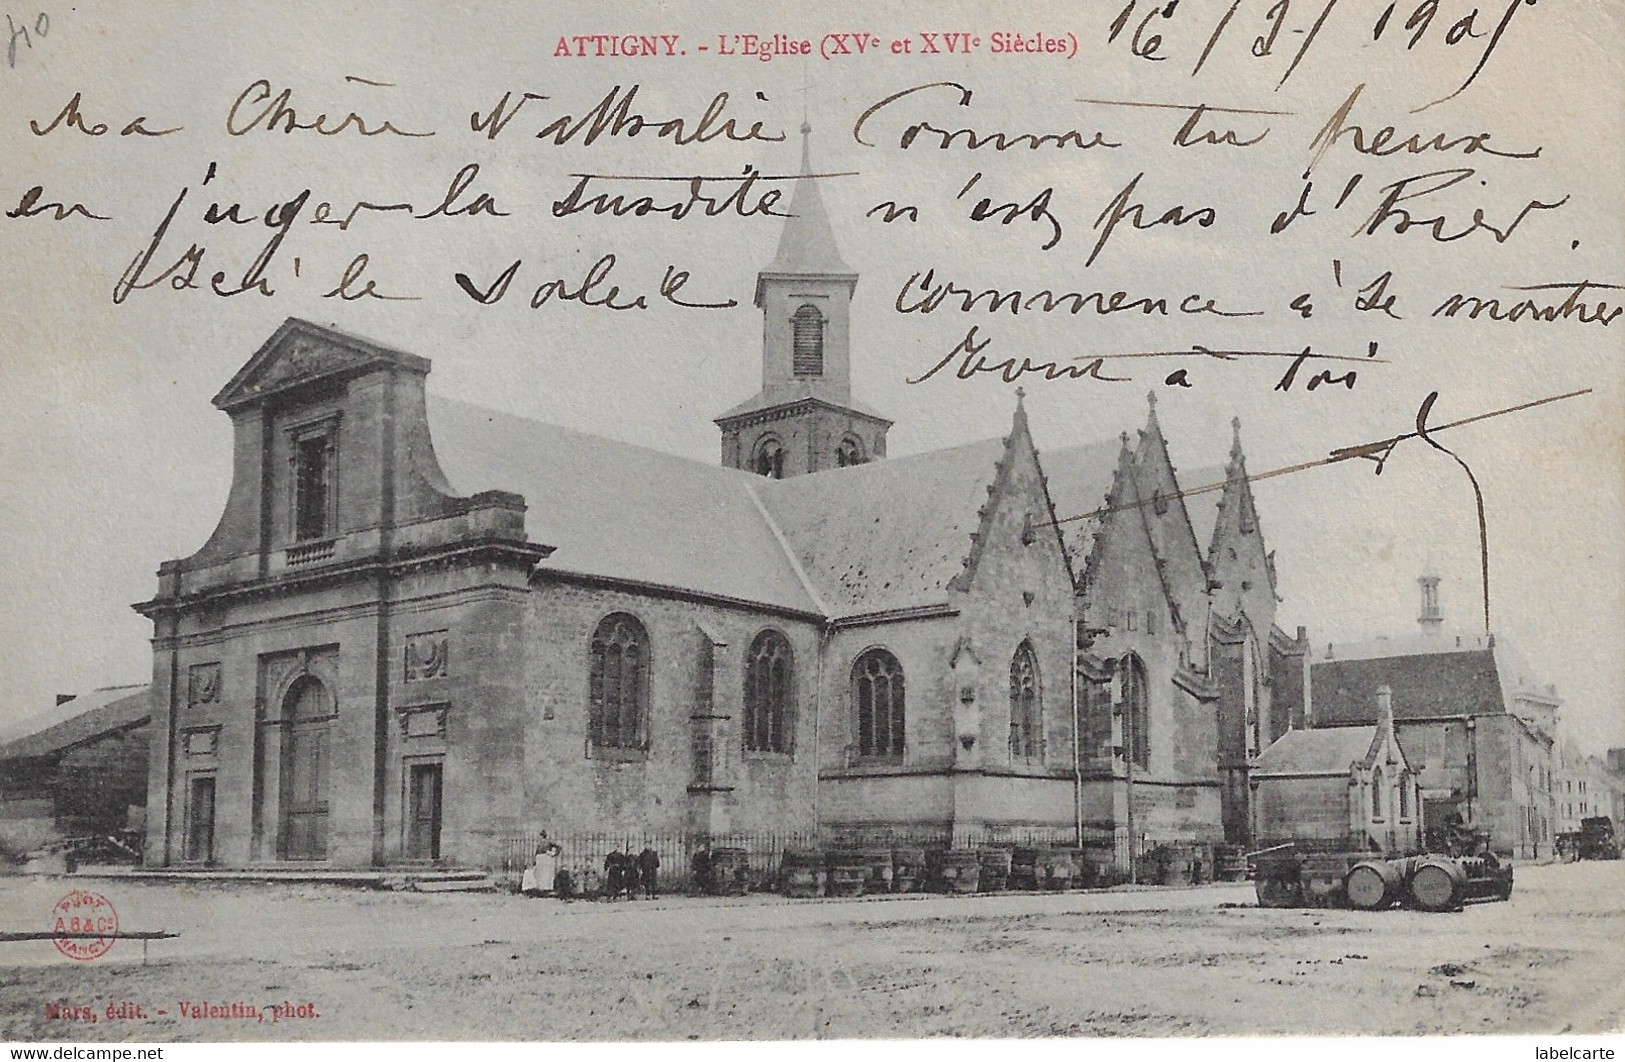 410
ATTIGNY. - L'Eglise (XVe et XVIe Siècles)
16/3/1905
Ma Chère Nathalie Comme tu peux
en juger la susdite n'est pas d'hier.
Ici le soleil commence à se montrer
à toi
PHOT
A.B & Cie
NANCY
Mars, édit. - Valentin, phot.
delcampe.net
labelcarte